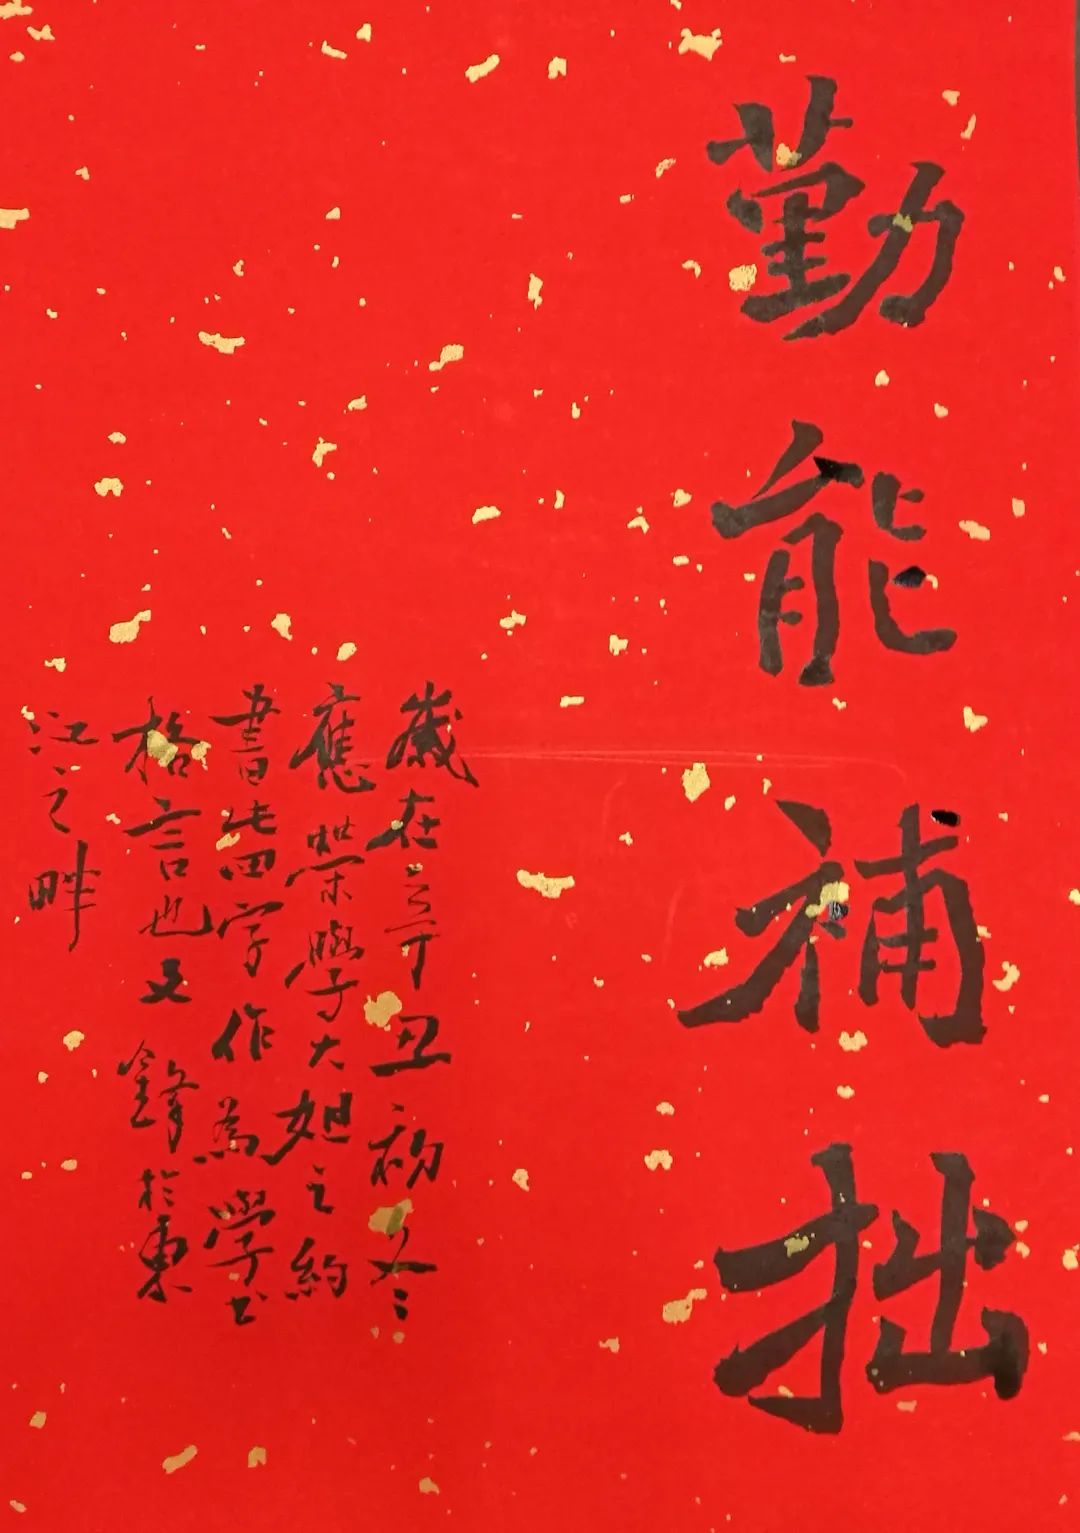 勤能補拙
歲在辛丑初冬
應榮學大姐之約
書此四字作為學書
格言也 文鋒於東
江之畔